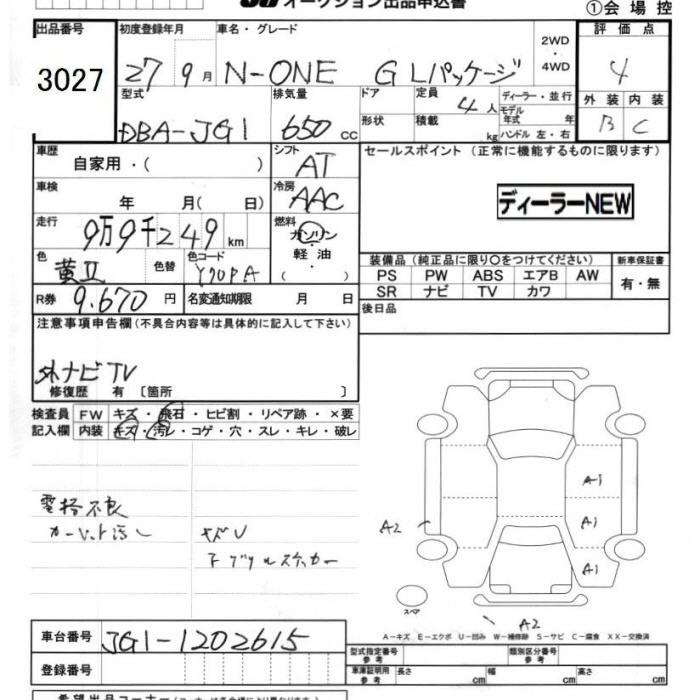 オークション出品申込書
①会場控
出品番号 初度登録年月 車名・グレード 2WD・4WD 評価点
3027 27 9月 N-ONE G Lパッケージ 4
型式 排気量 ドア 定員 4人 ディーラー・並行 外装 内装
DBA-JG1 650cc 形状 積載 kg モデル年式 年 ハンドル 左・右 B C
車歴 自家用・( ) シフト AT セールスポイント (正常に機能するものに限ります)
車検 年 月( 日) 冷房 AAC
ディーラーNEW
走行 9万9千249km 燃料 ガソリン・軽油・( )
色 黄II 色替 色コード Y70PA
装備品 (純正品に限り○をつけてください) 新車保証書
PS PW ABS エアB AW 有・無
SR ナビ TV カワ
R券 9.670円 名変通知期限 月 日 後日品
注意事項申告欄(不具合内容等は具体的に記入して下さい)
外ナビTV
修復歴 有 〔箇所 〕
検査員 FW キズ・飛石・ヒビ割・リペア跡・×要
記入欄 内装 キズ・汚レ・コゲ・穴・スレ・キレ・破レ
電格不良
カーペット汚レ
キズU
A1
A2 A1
A1
スペア
A2
A-キズ E-エクボ U-凹み W-補修跡 S-サビ C-腐食 XX-交換済
車台番号 JG1-1202615
型式指定番号 参考 類別区分番号 参考
登録番号 車庫証明用 参考 長さ cm 幅 cm 高さ cm
希望出品コーナー